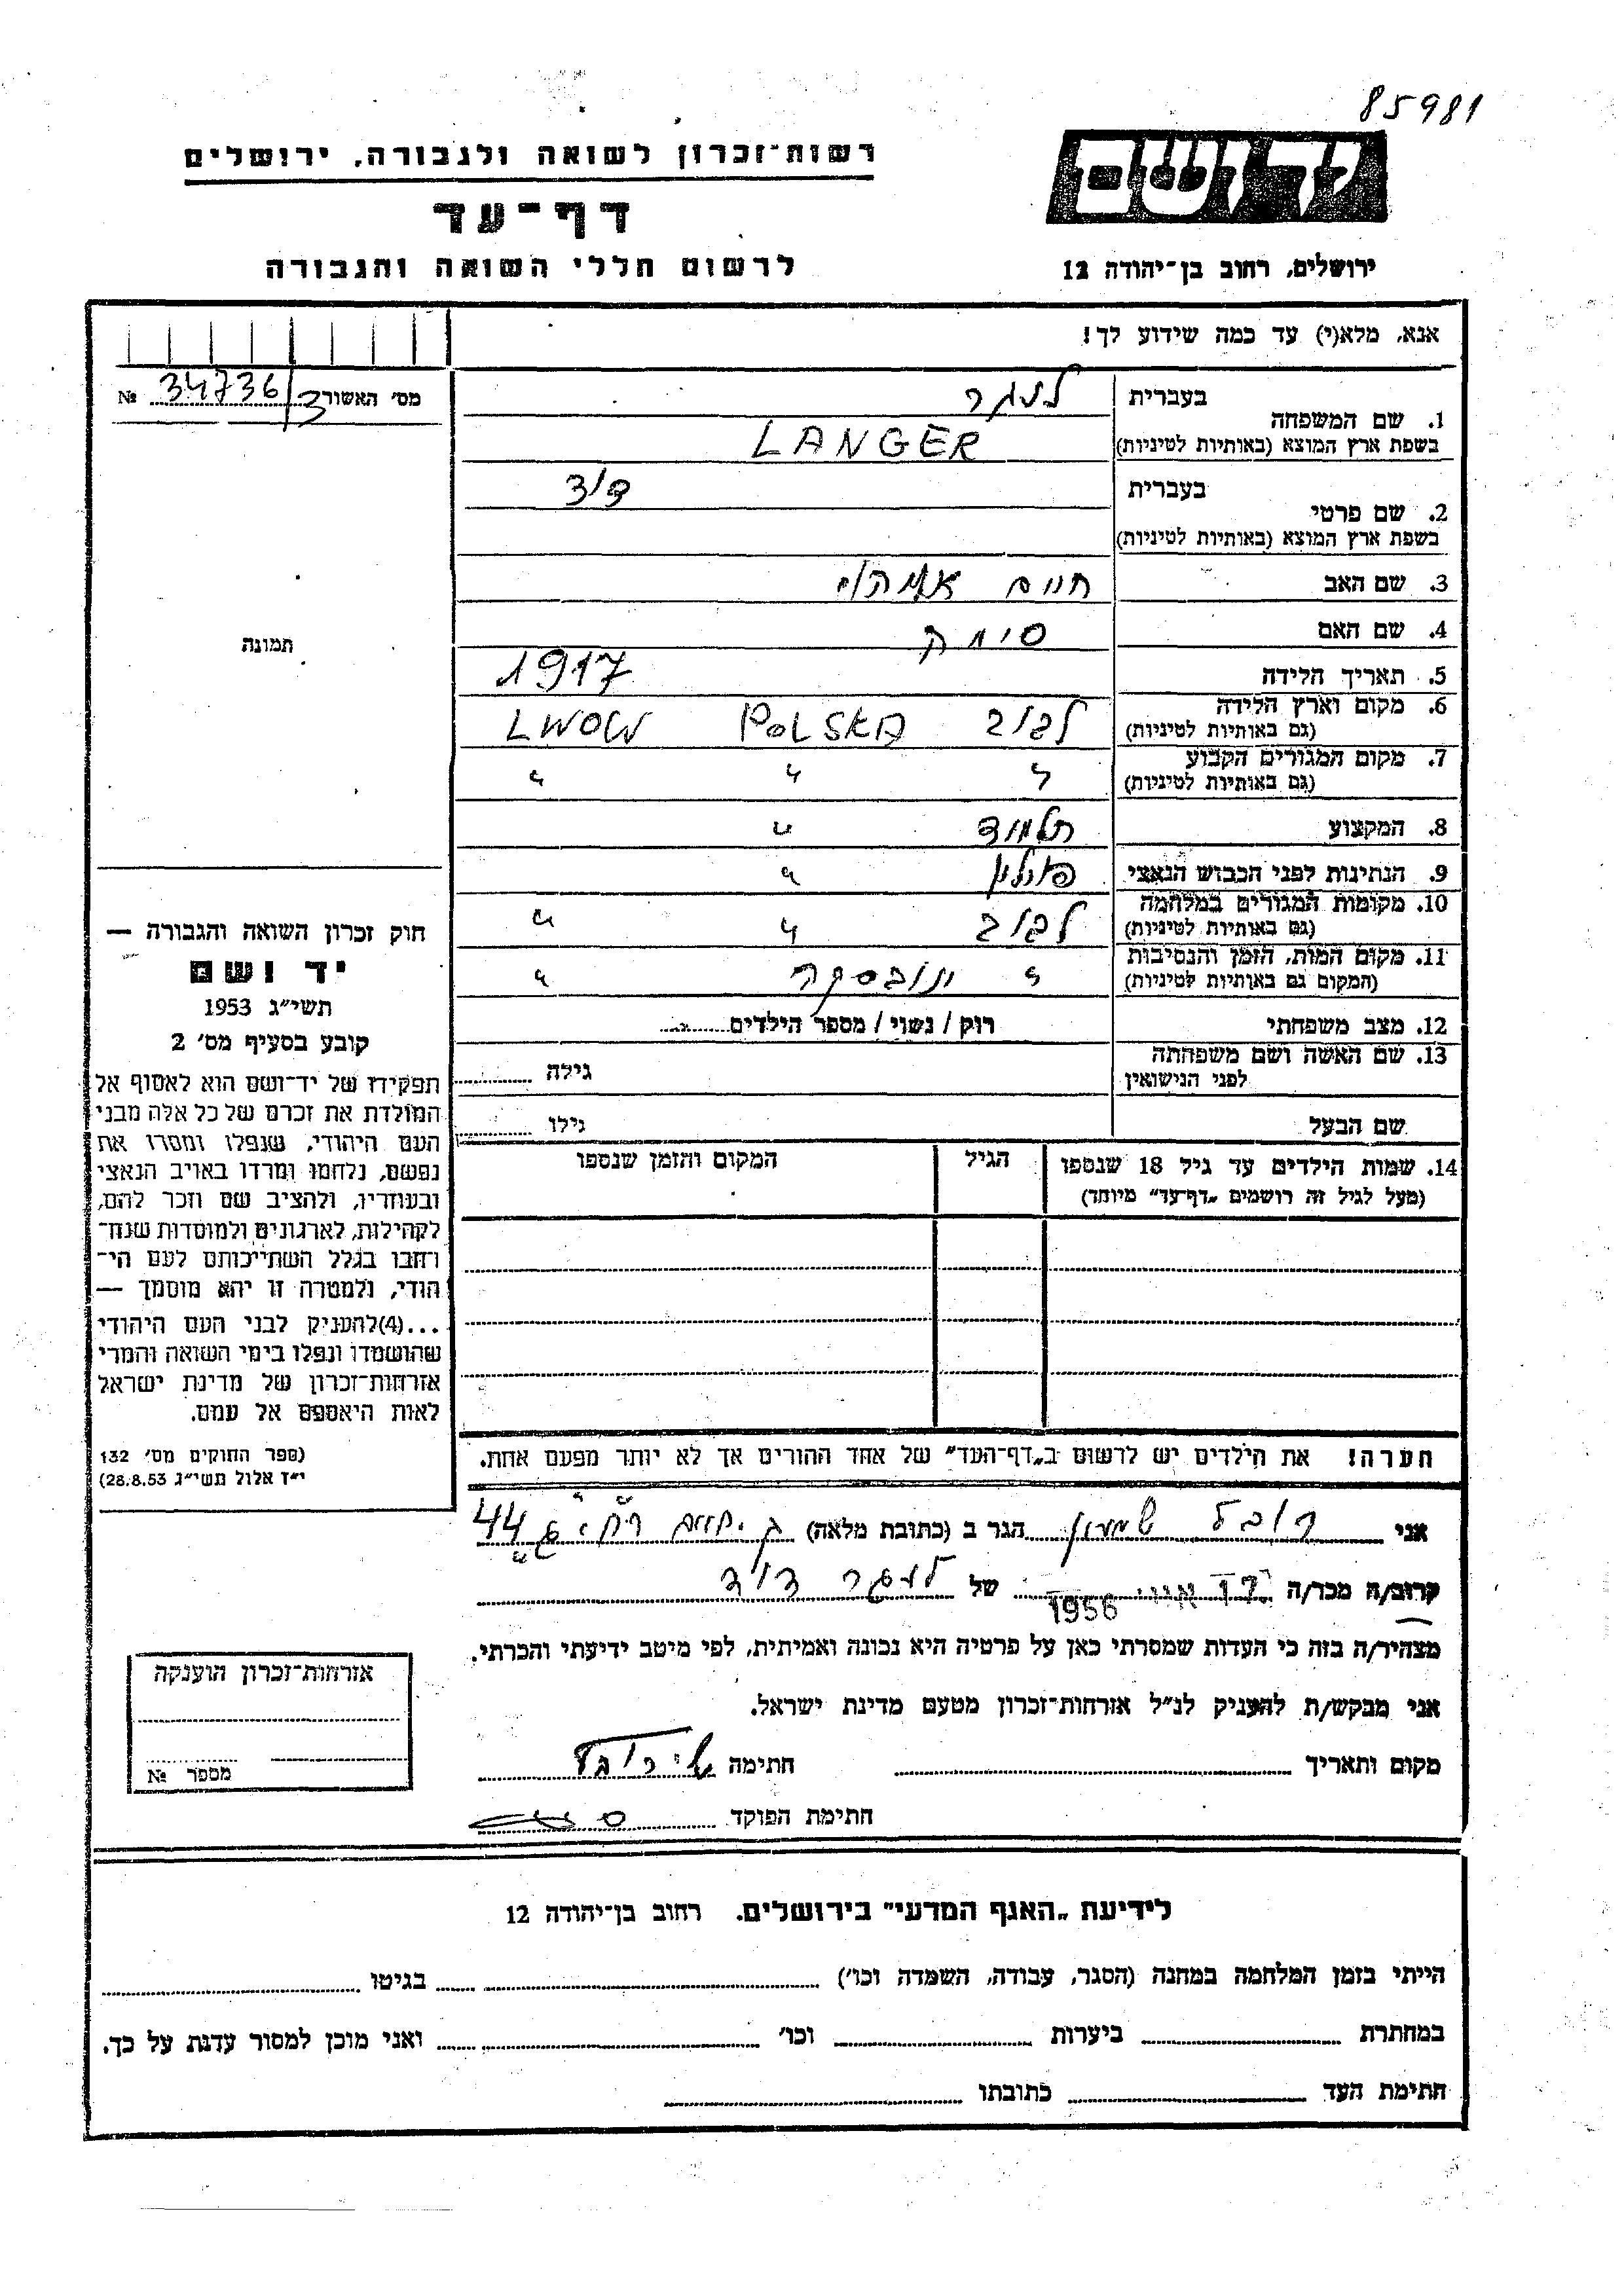 85981
רשות־זכרון לשואה ולגבורה, ירושלים
יד ושם
דף־עד
לרשום חללי השואה והגבורה
ירושלים, רחוב בן־יהודה 12
אנא, מלא(י) עד כמה שידוע לך!
מס׳ האשור 34736/3 №
1. שם המשפחה
בעברית לנגר
בשפת ארץ המוצא (באותיות לטיניות) LANGER
2. שם פרטי
בעברית דוד
בשפת ארץ המוצא (באותיות לטיניות)
3. שם האב חיים
4. שם האם סימה
5. תאריך הלידה 1917
6. מקום וארץ הלידה לבוב POLSKA LWOW
(גם באותיות לטיניות)
7. מקום המגורים הקבוע " " "
(גם באותיות לטיניות)
8. המקצוע תלמיד "
9. הנתינות לפני הכבוש הנאצי פולין "
10. מקומות המגורים במלחמה לבוב " "
(גם באותיות לטיניות)
11. מקום המות, הזמן והנסיבות " ינובסקה "
(המקום גם באותיות לטיניות)
12. מצב משפחתי רוק / נשוי / מספר הילדים
13. שם האשה ושם משפחתה
לפני הנישואין גילה
שם הבעל גילו
14. שמות הילדים עד גיל 18 שנספו הגיל המקום והזמן שנספו
(מעל לגיל זה רושמים „דף־עד״ מיוחד)
הערה! את הילדים יש לרשום ב„דף־העד״ של אחד ההורים אך לא יותר מפעם אחת.
תמונה
חוק זכרון השואה והגבורה —
יד ושם
תשי״ג 1953
קובע בסעיף מס׳ 2
תפקידו של יד־ושם הוא לאסוף אל
המולדת את זכרם של כל אלה מבני
העם היהודי, שנפלו ומסרו את
נפשם, נלחמו ומרדו באויב הנאצי
ובעוזריו, ולהציב שם וזכר להם,
לקהילות, לארגונים ולמוסדות שנח־
רבו בגלל השתייכותם לעם הי־
הודי, ולמטרה זו יהא מוסמך —
...(4)להעניק לבני העם היהודי
שהושמדו ונפלו בימי השואה והמרי
אזרחות־זכרון של מדינת ישראל
לאות היאספם אל עמם.
(ספר החוקים מס׳ 132
י״ז אלול תשי״ג 28.8.53)
אני רובל שמעון הגר ב (כתובת מלאה) 44
קרוב/ה מכר/ה 1956 של לנגר דוד
מצהיר/ה בזה כי העדות שמסרתי כאן על פרטיה היא נכונה ואמיתית, לפי מיטב ידיעתי והכרתי.
אני מבקש/ת להעניק לנ״ל אזרחות־זכרון מטעם מדינת ישראל.
מקום ותאריך חתימה
חתימת הפוקד
אזרחות־זכרון הוענקה
מספר №
לידיעת „האגף המדעי״ בירושלים. רחוב בן־יהודה 12
הייתי בזמן המלחמה במחנה (הסגר, עבודה, השמדה וכו׳) בגיטו
במחתרת ביערות וכו׳ ואני מוכן למסור עדות על כך.
חתימת העד כתובתו